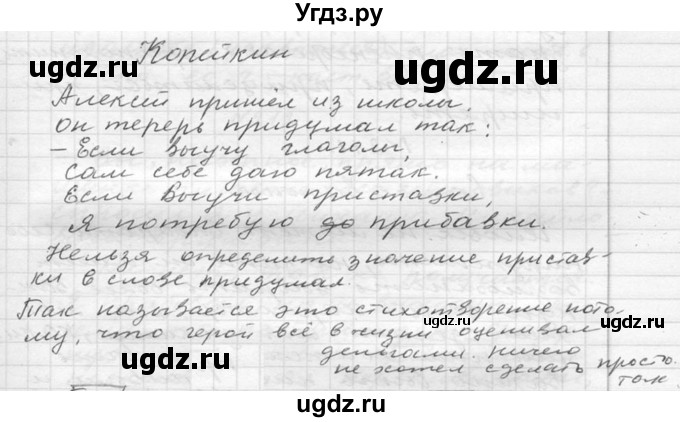 Угдз.ру
Копейкин
ugdz.ru
ugdz.ru
Алексей пришёл из школы.
Он терерь придумал так:
– Если выучу глаголы,
Сам себе даю пятак.
Если Выучи приставки,
Я потребую до прибавки.
ugdz.ru
Нельзя определить значение пристав-
ки в слове придумал.
Так называется это стихотворение пото-
му, что герой всё в жизни оценивал
ugdz.ru
ugdz.ru
деньгами. ничего
не хотел сделать просто
так
ugdz.ru